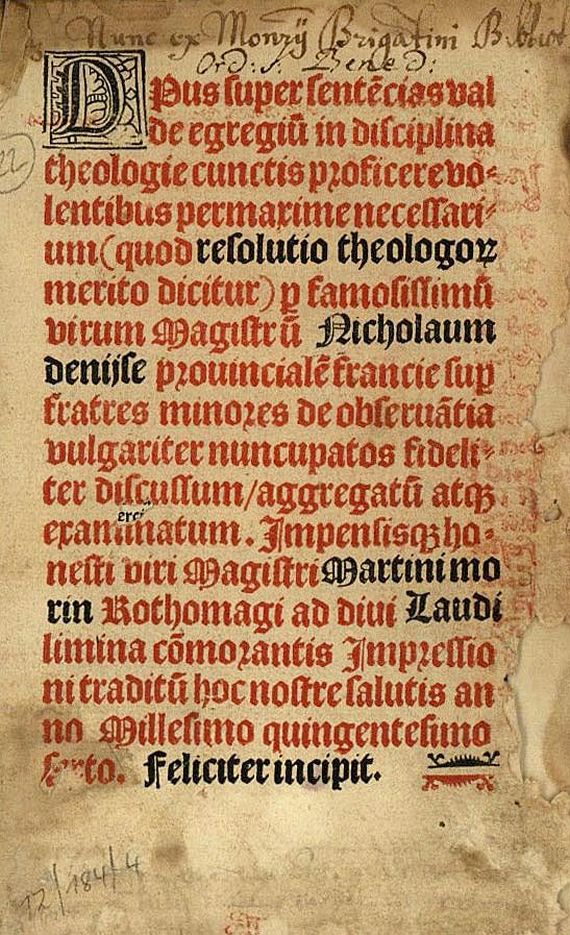 Nunc ex Monrÿ Brigatini Bibliot
Ord: S. Bened:
22
Opus super sentẽcias val
de egregiũ in disciplina
theologie cunctis proficere vo⸗
lentibus permaxime necessari⸗
um (quod resolutio theologoꝝ
merito dicitur) ꝑ famosissimũ
virum Magistrũ Nicholaum
denijse prouincialẽ francie suꝑ
fratres minores de obseruãtia
vulgariter nuncupatos fideli⸗
ter discussum/aggregatũ atqꝫ
erci
examinatum. Impensisqꝫ ho⸗
nesti viri Magistri Martini mo
rin Rothomagi ad diui Laudi
limina cõmorantis Impressio
ni traditũ hoc nostre salutis an
no Millesimo quingentesimo
sexto. Feliciter incipit.
12/184/4